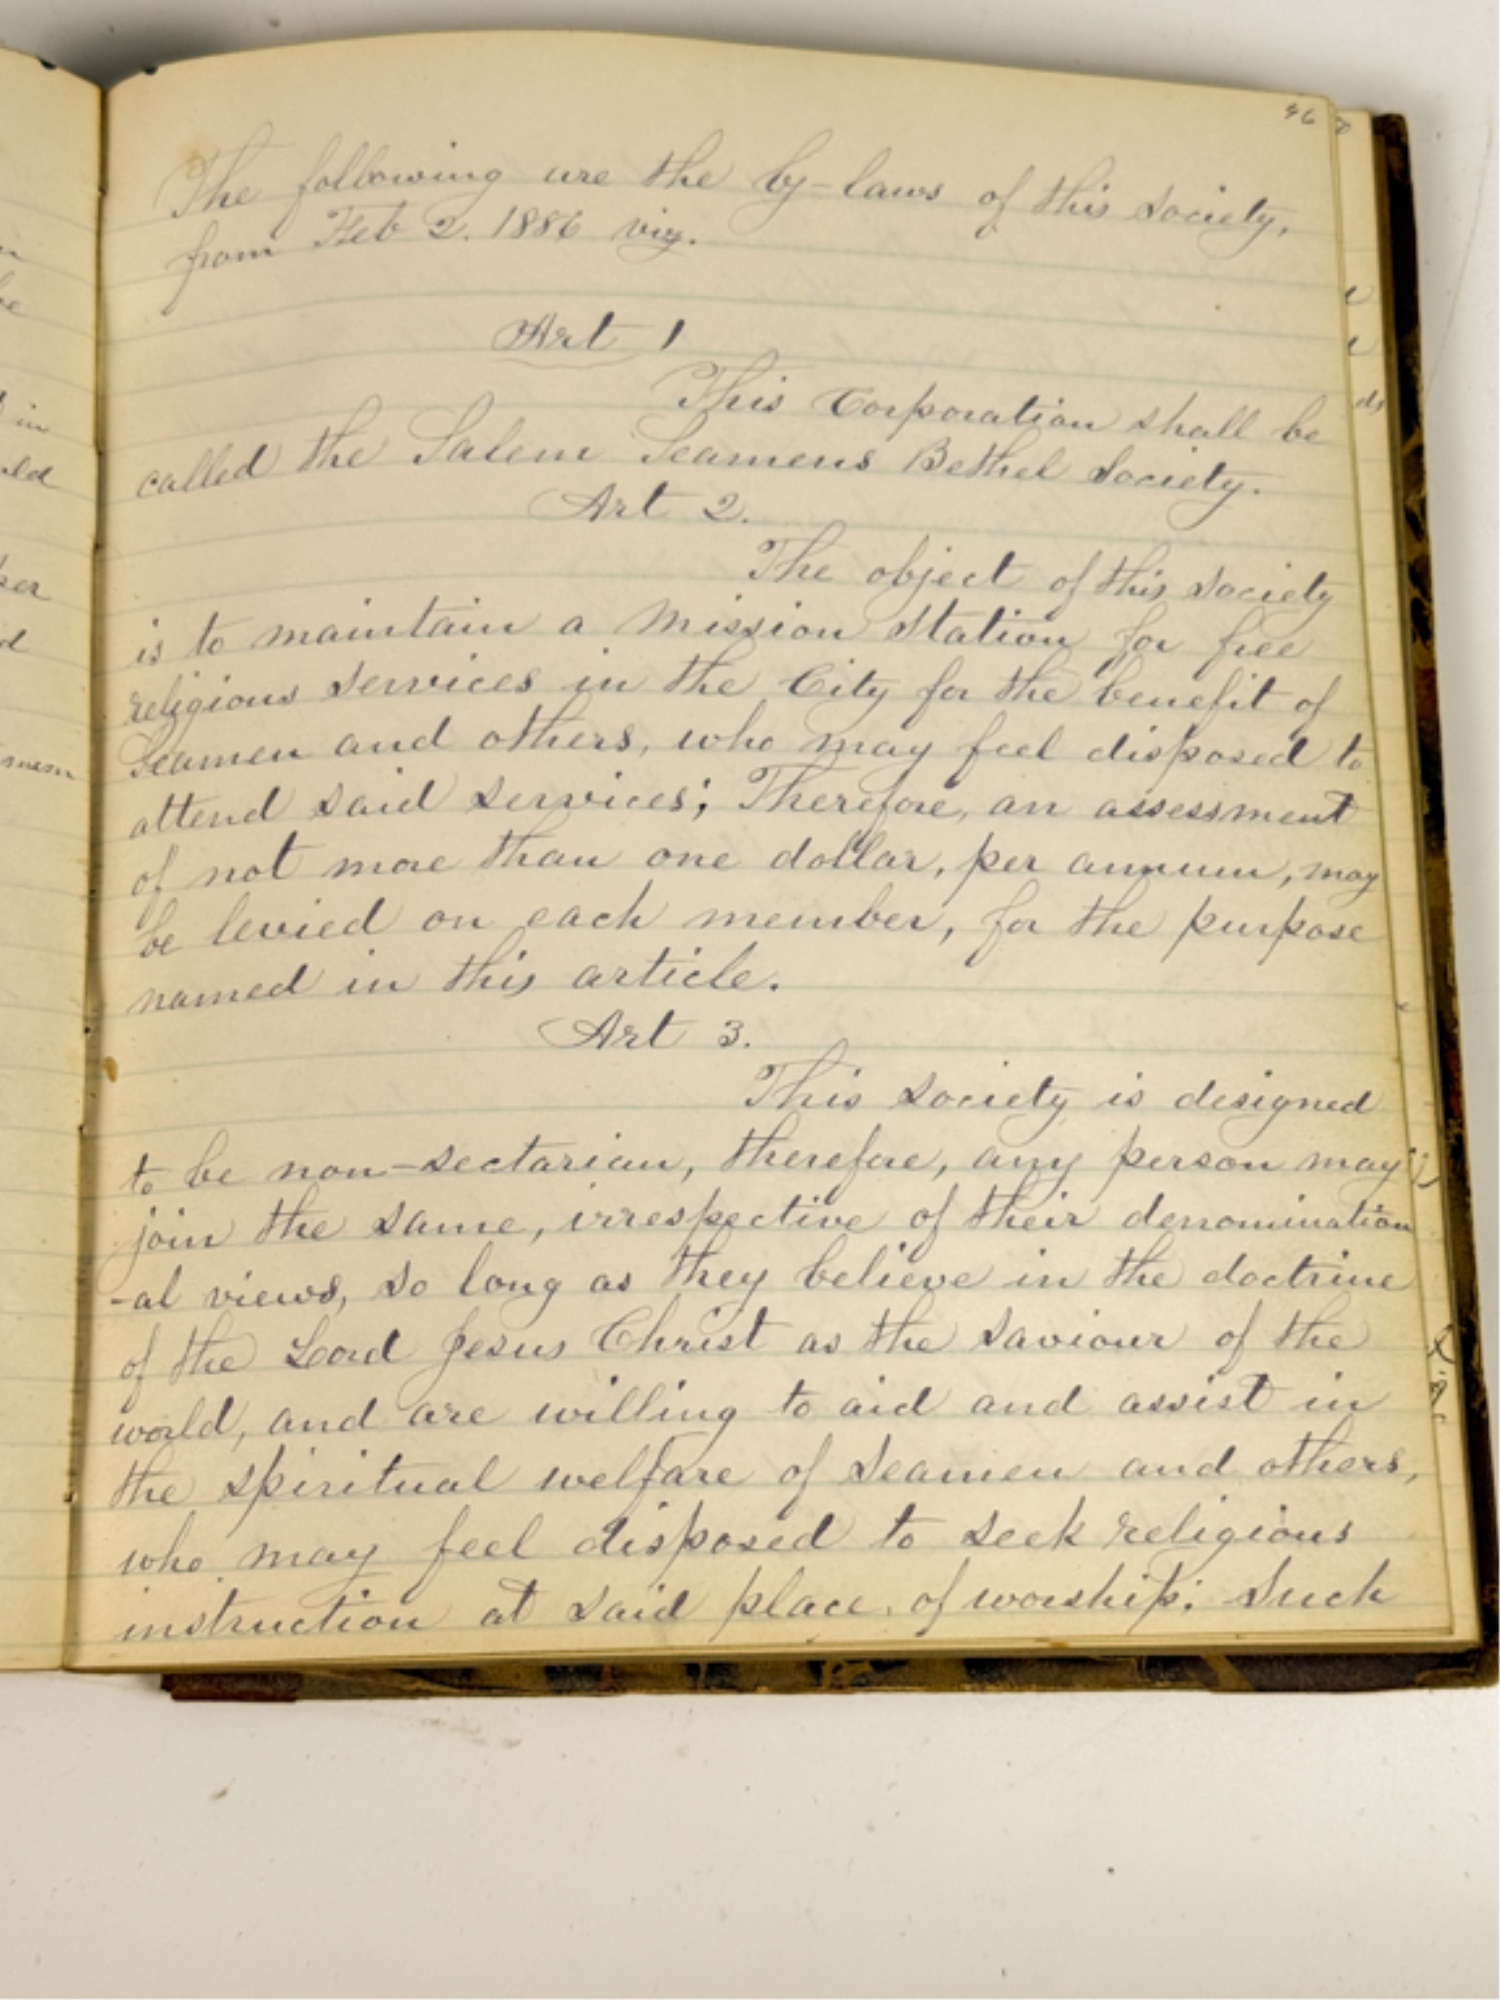 46
The following are the by-laws of this Society,
from Feb 2. 1886 viz.
Art 1
This Corporation shall be
called the Salem Seamens Bethel Society.
Art 2.
The object of this Society
is to maintain a Mission Station for free
religious services in the City for the benefit of
Seamen and others, who may feel disposed to
attend said services; Therefore, an assessment
of not more than one dollar, per annum, may
be levied on each member, for the purpose
named in this article.
Art 3.
This Society is designed
to be non-sectarian, therefore, any person may
join the same, irrespective of their denomination
-al views, so long as they believe in the doctrine
of the Lord Jesus Christ as the Saviour of the
world, and are willing to aid and assist in
the spiritual welfare of Seamen and others,
who may feel disposed to seek religious
instruction at said place of worship: Such